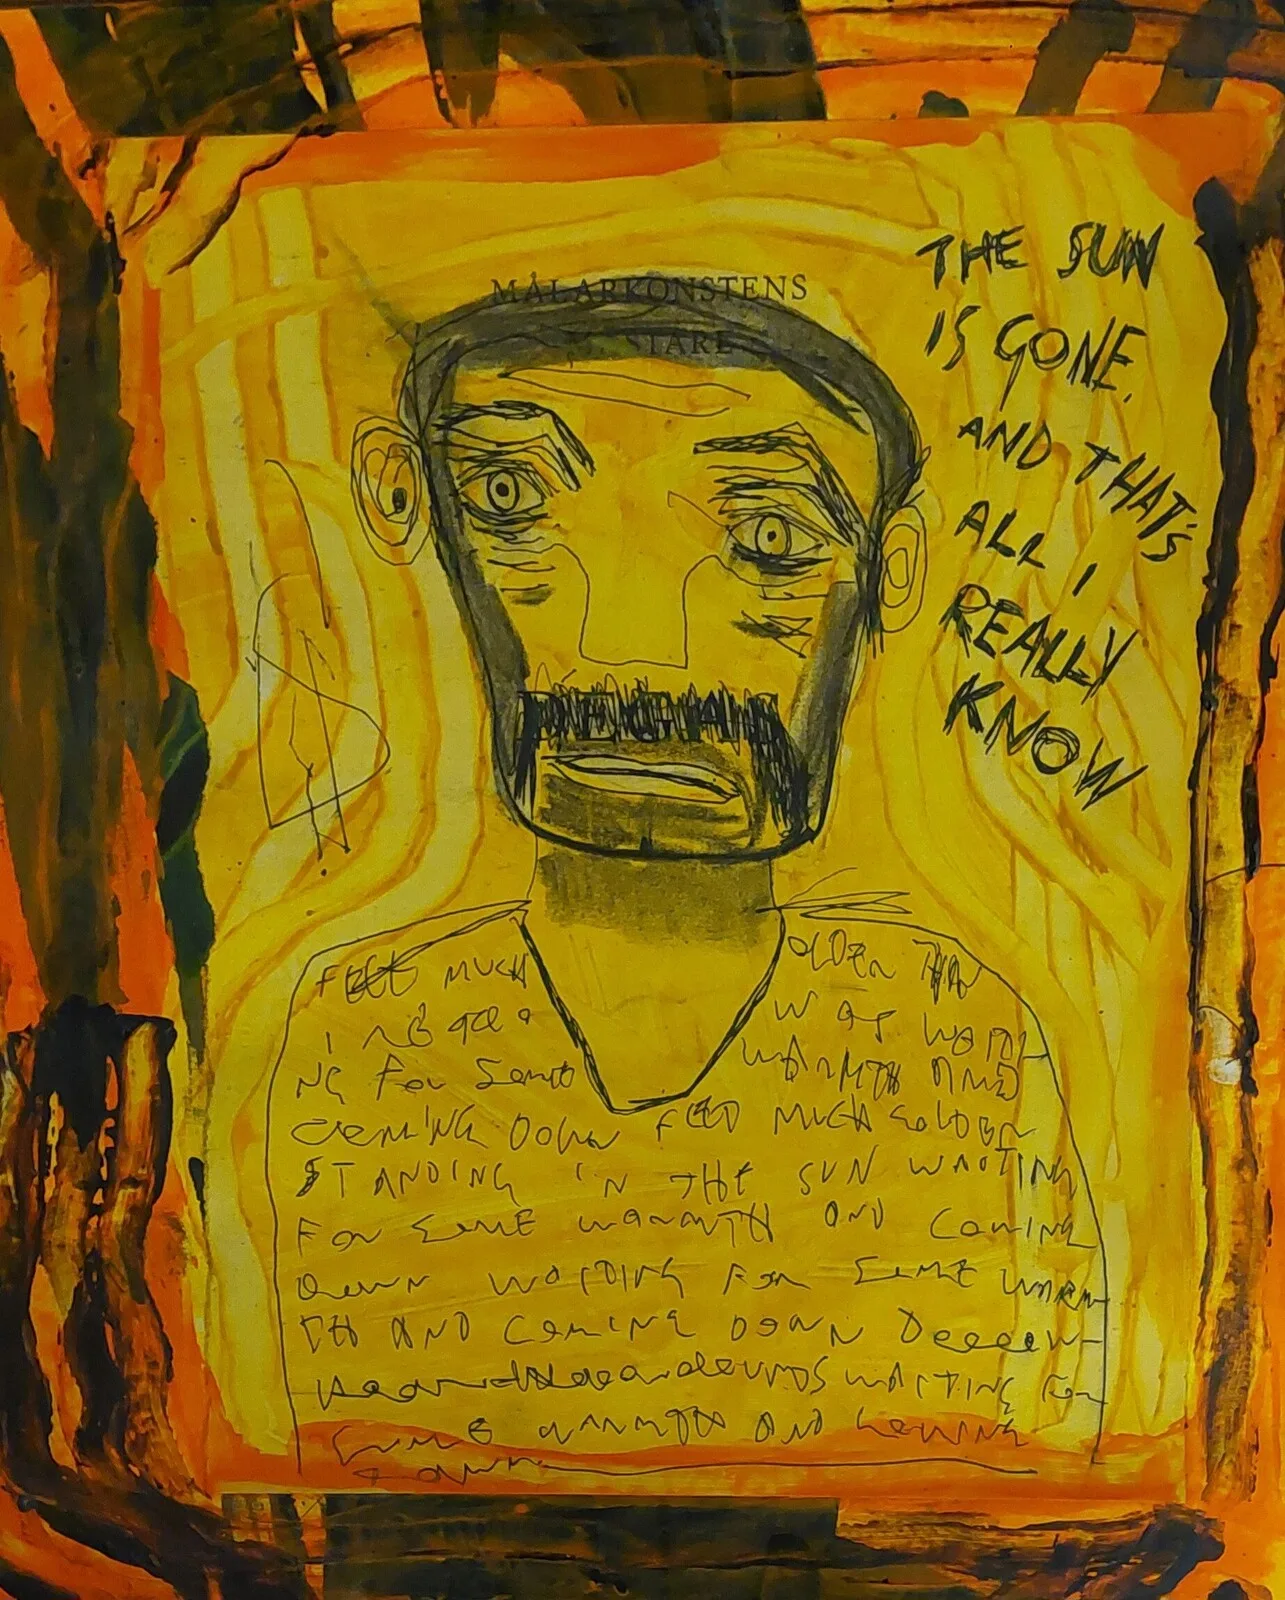 MÅLARKONSTENS
STARE
THE SUN
IS GONE.
AND THAT'S
ALL I
REALLY
KNOW
FEEL MUCH OLDER THAN
I WAS
NG FOR SOME WARMTH AND
COMING DOWN FEED MUCH GOLDEN
STANDING IN THE SUN WAITING
FOR SOME WARMTH AND COMING
DOWN WAITING FOR SOME WARM
TH AND COMING DOWN
WAITING FOR
SOME WARMTH AND COMING
DOWN